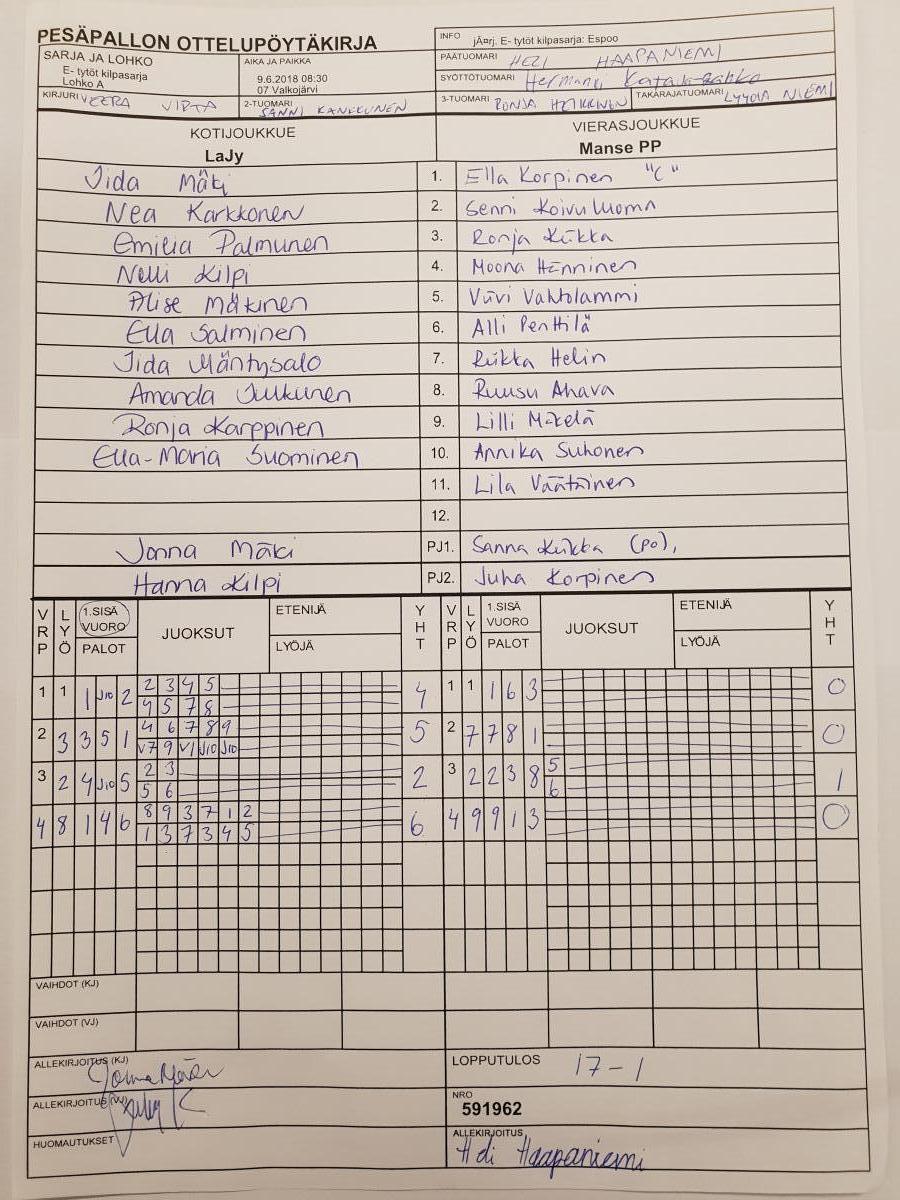 PESÄPALLON OTTELUPÖYTÄKIRJA
INFO jÃ¤rj. E- tytöt kilpasarja: Espoo
SARJA JA LOHKO
E- tytöt kilpasarja
Lohko A
AIKA JA PAIKKA
9.6.2018 08:30
07 Valkojärvi
PÄÄTUOMARI HELI HAAPANIEMI
SYÖTTÖTUOMARI Hermanni
KIRJURI VEERA VIRTA
2-TUOMARI SANNI KANKKUNEN
3-TUOMARI RONJA HEIKKINEN
TAKARAJATUOMARI LYYDIA NIEMI
KOTIJOUKKUE
LaJy
VIERASJOUKKUE
Manse PP
Iida Mäki 1. Ella Korpinen "C"
Nea Karkkonen 2. Senni Koivuluoma
Emilia Palmunen 3. Ronja Kiikka
Nelli Kilpi 4. Moona Hänninen
Alise Mäkinen 5. Viivi Vahtolammi
Ella Salminen 6. Alli Penttilä
Iida Mäntysalo 7. Riikka Helin
Amanda Julkunen 8. Ruusu Ahava
Ronja Karppinen 9. Lilli Mäkelä
Ella-Maria Suominen 10. Annika Suhonen
11. Lila Väätäinen
12.
Jonna Mäki PJ1. Sanna Kiikka (po),
Hanna Kilpi PJ2. Juha Korpinen
VRP LYÖ 1.SISÄ VUORO PALOT JUOKSUT ETENIJÄ LYÖJÄ YHT VRP LYÖ 1.SISÄ VUORO PALOT JUOKSUT ETENIJÄ LYÖJÄ YHT
1 1 1 J10 2 2 3 4 5 4 1 1 1 6 3 0
4 5 7 8
2 3 3 5 1 4 6 7 8 9 5 2 7 7 8 1 0
V7 9 V1 J10 J10
3 2 4 J10 5 2 3 2 3 2 2 3 8 5 1
5 6 6
4 8 1 4 6 8 9 3 7 1 2 6 4 9 9 1 3 0
1 3 7 3 4 5
VAIHDOT (KJ)
VAIHDOT (VJ)
ALLEKIRJOITUS (KJ)
LOPPUTULOS 17-1
ALLEKIRJOITUS (VJ)
NRO
591962
HUOMAUTUKSET
ALLEKIRJOITUS
Haapaniemi